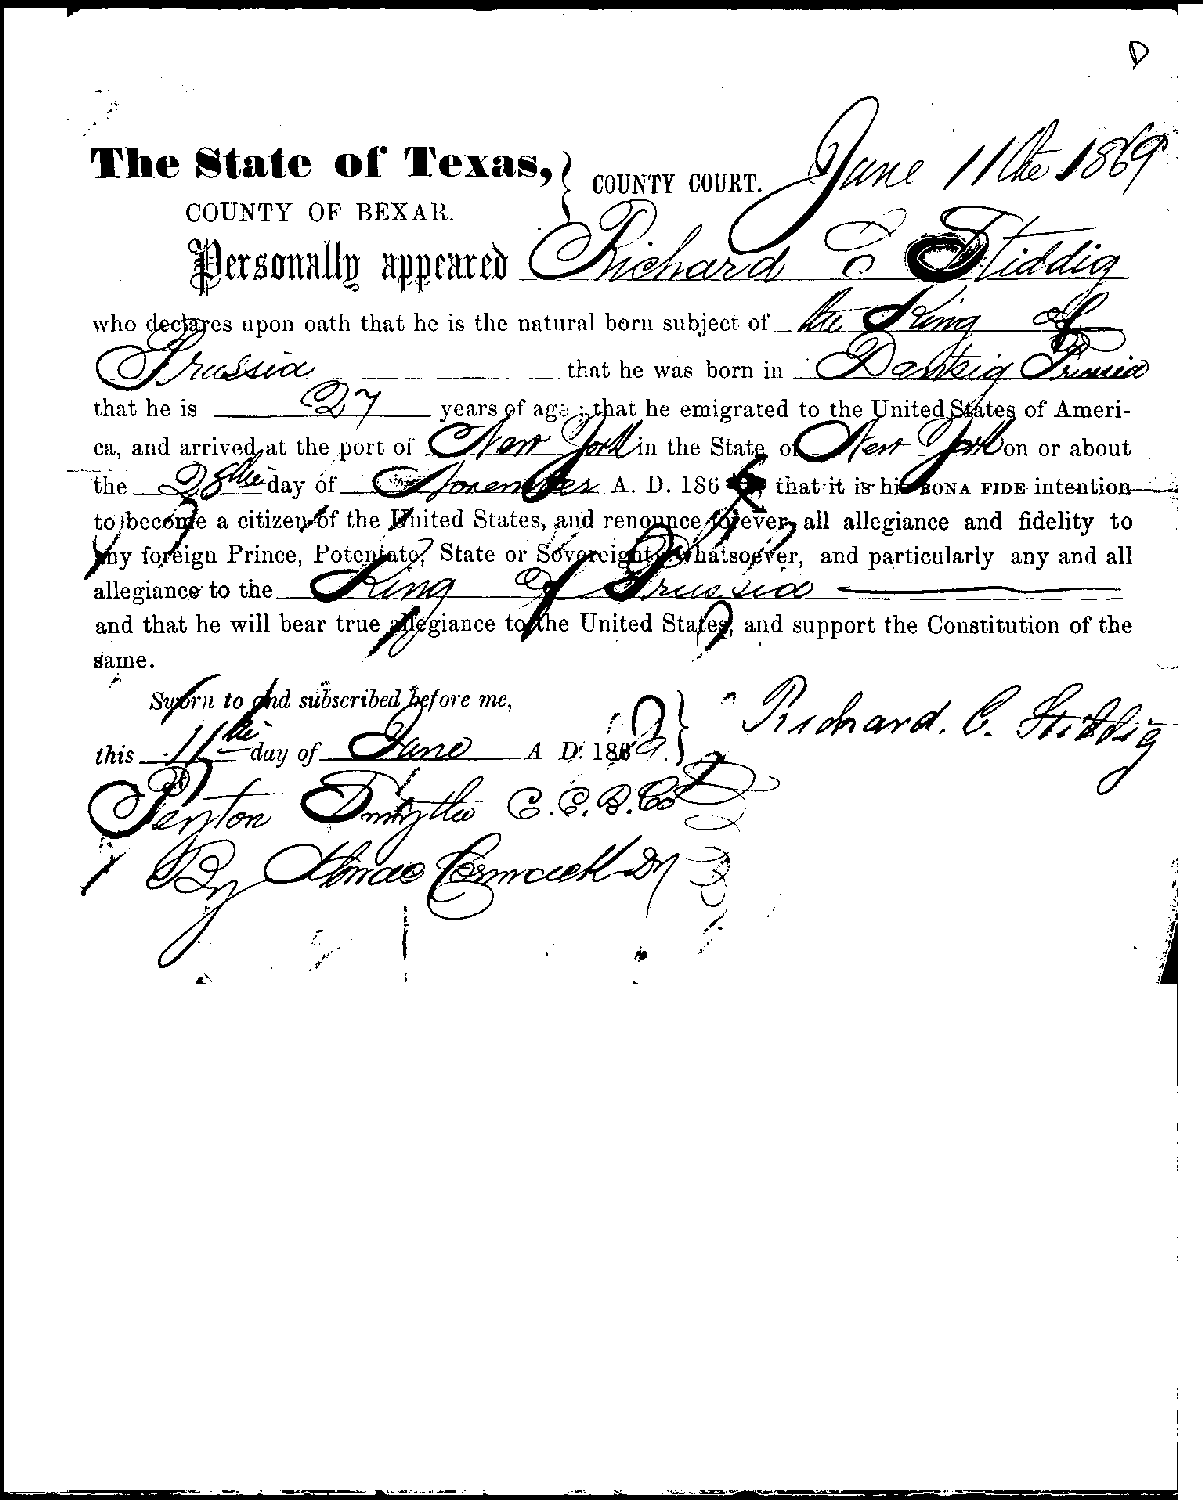 D
The State of Texas, } COUNTY COURT. June 11th 1869
COUNTY OF BEXAR.
Personally appeared Richard C Stiddig
who declares upon oath that he is the natural born subject of the King of
Prussia that he was born in Dantzig Prussia
that he is 27 years of age; that he emigrated to the United States of Ameri-
ca, and arrived at the port of New York in the State of New York on or about
the 28th day of November A. D. 186 that it is his BONA FIDE intention
to become a citizen of the United States, and renounce forever, all allegiance and fidelity to
any foreign Prince, Potentate, State or Sovereignty whatsoever, and particularly any and all
allegiance to the King of Prussia
and that he will bear true allegiance to the United States, and support the Constitution of the
same.
Sworn to and subscribed before me,
this 11th day of June A D. 1869. } Richard. C. Stiddig
Peyton Smythe C.C.B.Co
By